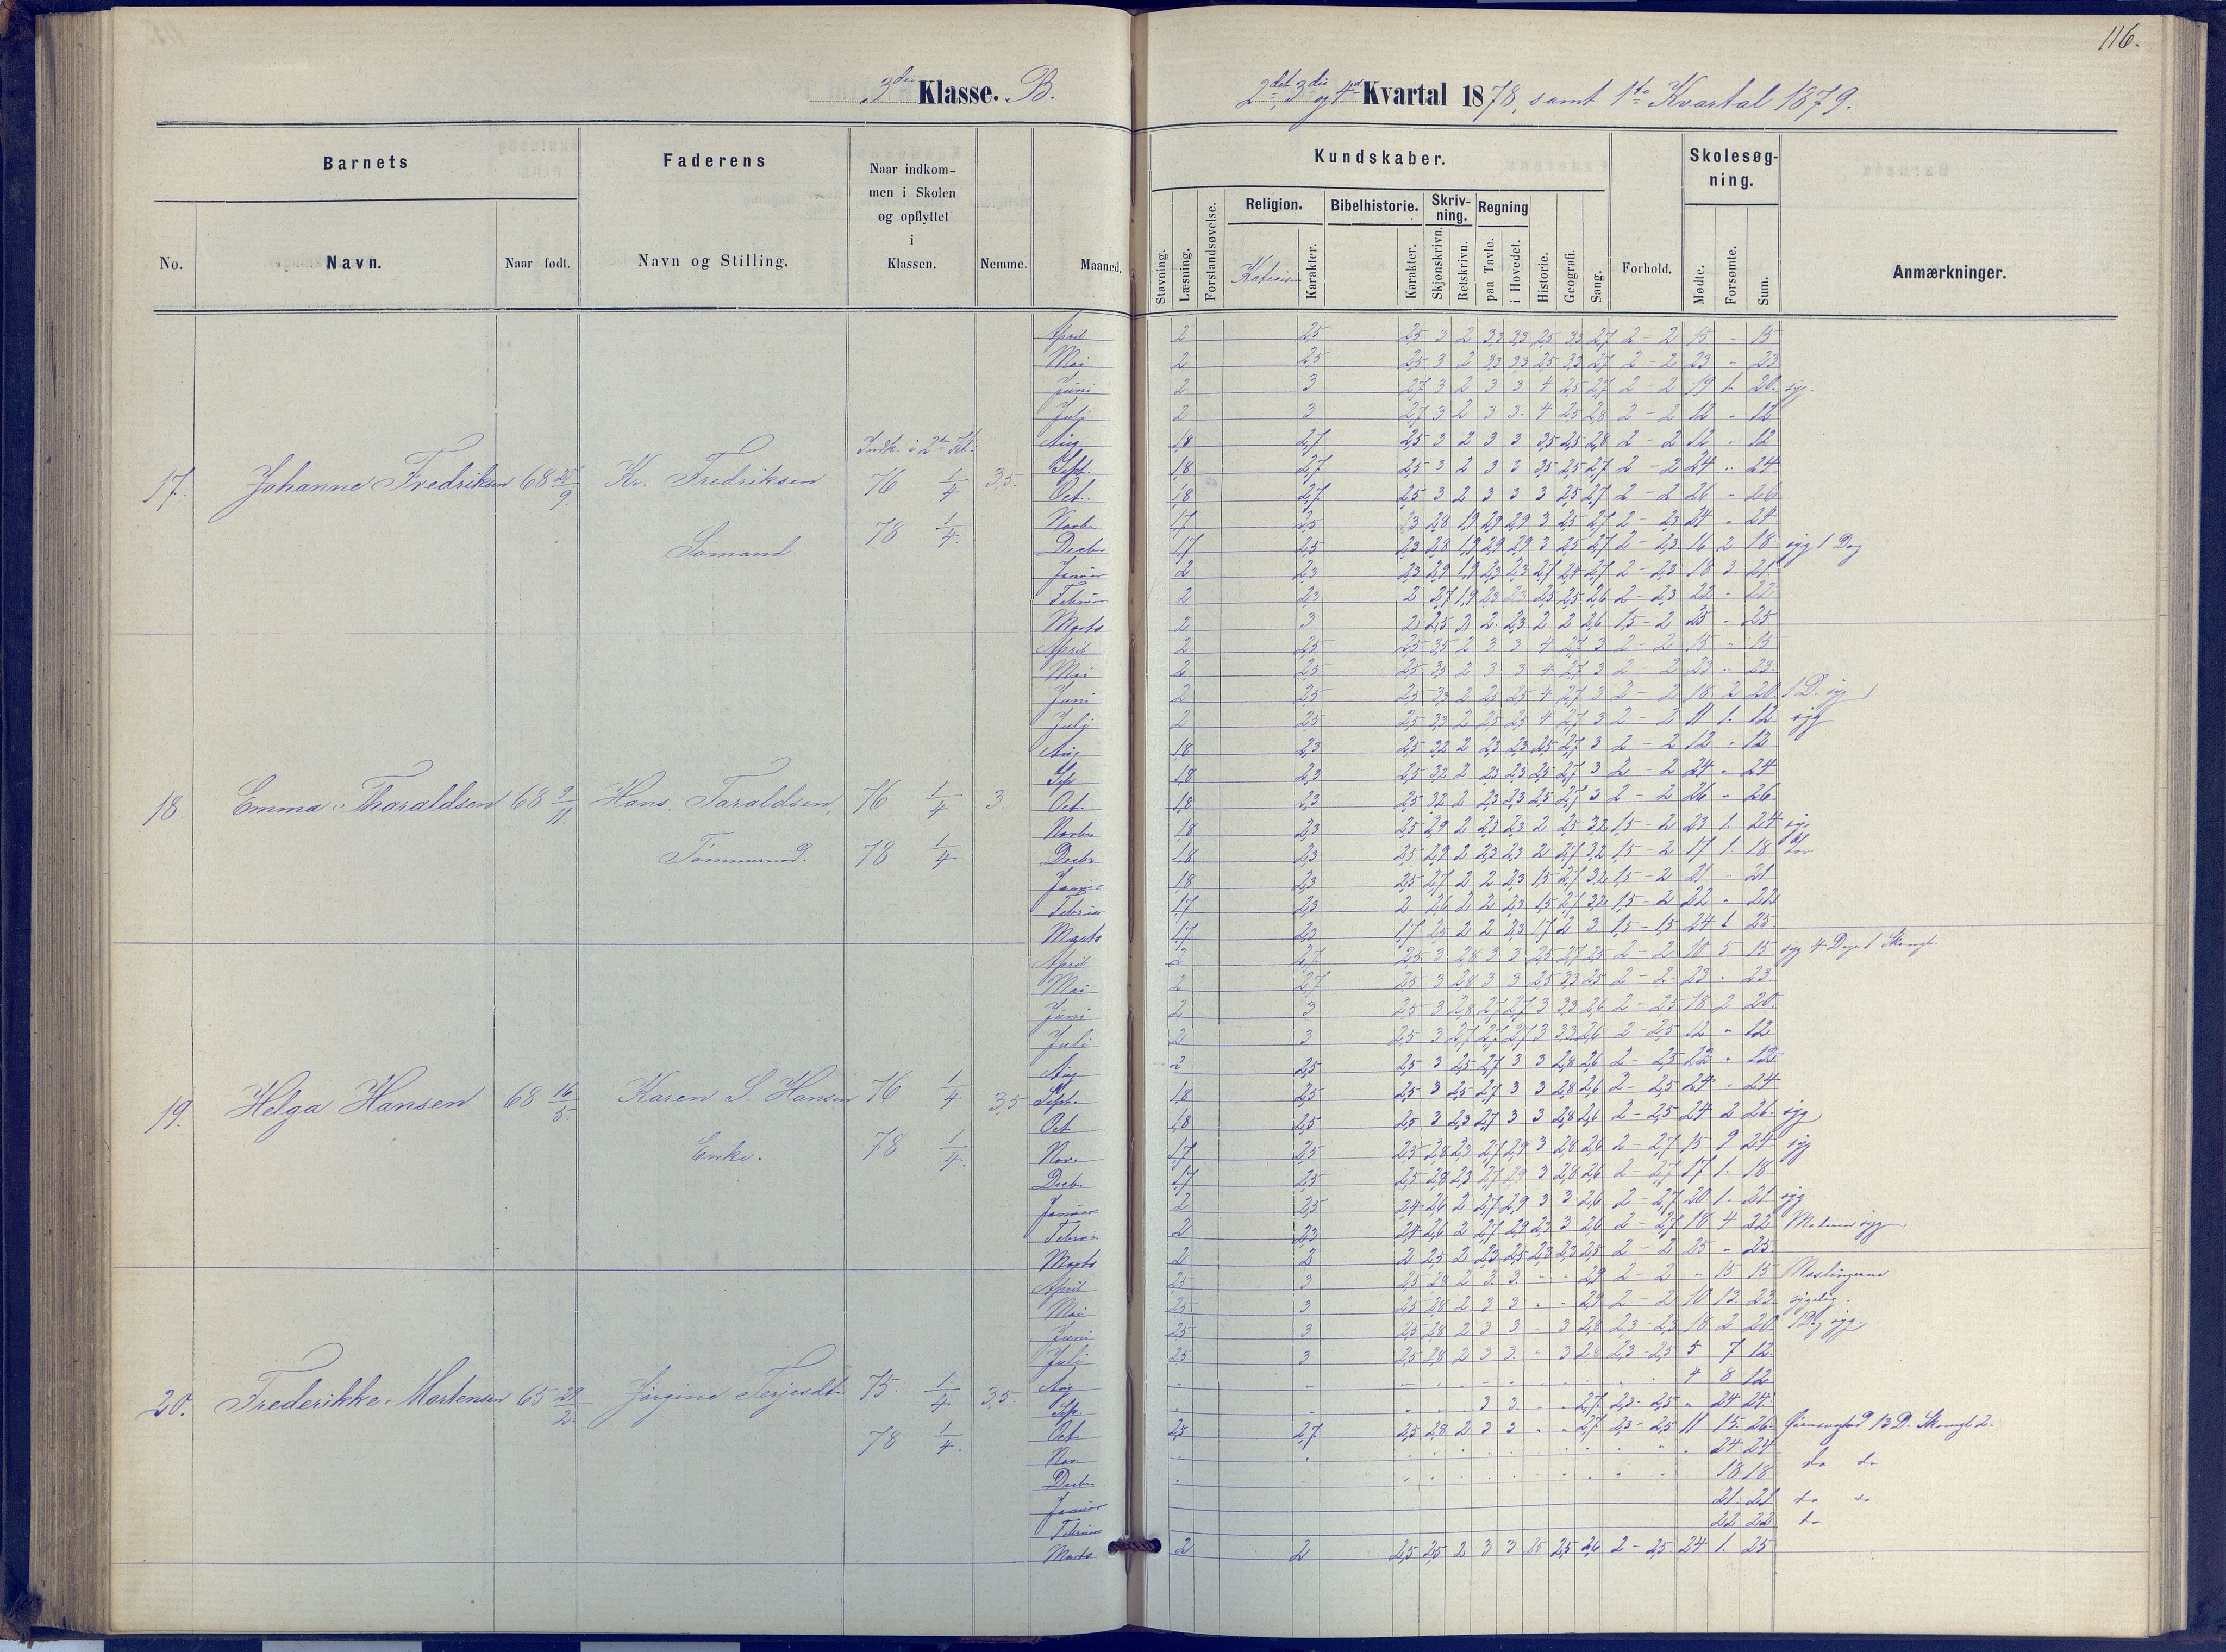 116.
3die Klasse. B.
2det, 3die og 4de Kvartal 1878, samt 1ste Kvartal 1879.
Barnets
Faderens
Naar indkommen i Skolen og opflyttet i Klassen.
Nemme.
Maaned.
Kundskaber.
Forhold.
Skolesøgning.
Anmærkninger.
No.
Navn.
Naar født.
Navn og Stilling.
Stavning.
Læsning.
Forstandsøvelse.
Religion.
Karakter.
Bibelhistorie.
Karakter.
Skrivning.
Skjønskrivn.
Retskrivn.
Regning
paa Tavle.
i Hovedet.
Historie.
Geografi.
Sang.
Mødte.
Forsømte.
Sum.
17. Johanne Fredriksen 68 28/9. Kr. Fredriksen 76 1/4 3,5.
Sømand. 78 1/4.
April 2 2,5 2,5 3 2 3,3 3,3 2,5 3,3 2,7 2 - 2 15 " 15
Mai 2 2,5 2,5 3 2 3,3 3,3 2,5 3,3 2,7 2 - 2 23 " 23
Juni 2 3 2,7 3 2 3 3 4 2,5 2,7 2 - 2 19 1. 20. syg.
Juli 2 3 2,7 3 2 3 3. 4 2,5 2,8 2 - 2 12 " 12
Aug 1,8 2,7 2,5 3 2 3 3 3,5 2,5 2,8 2 - 2 12 " 12
Sept. 1,8 2,7 2,5 3 2 3 3 3,5 2,5 2,7 2 - 2 24 " 24
Oct. 1,8 2,7 2,5 3 2 3 3 3 2,5 2,7 2 - 2 26 " 26
Novbr 1,7 2,5 2,3 2,8 1,9 2,9 2,9 3 2,5 2,7 2 - 2,3 24 " 24
Decbr 1,7 2,5 2,3 2,8 1,9 2,9 2,9 3 2,5 2,7 2 - 2,3 16 2 18 syg 1 Dag
Januar 2 2,3 2,3 2,9 1,9 2,3 2,3 2,7 2,4 2,7 2 - 2,3 18 3 21
Februar 2 2,3 2 2,7 1,9 2,3 2,3 2,5 2,5 2,6 2 - 2,3 22 " 22
Marts 2 3 2 2,5 2 2 2,3 2 2 2,6 1,5 - 2 25 " 25
18 Emma Tharaldsen 68 9/11. Hans Taraldsen, 76 1/4 3.
Tømmermd. 78 1/4
April 2 2,5 2,5 3,5 2 3 3 4 2,7 3 2 - 2 15 " 15
Mai 2 2,5 2,5 3,5 2 3 3 4 2,7 3 2 - 2 23 " 23
Juni 2 2,5 2,5 3,3 2 2,5 2,5 4 2,7 3 2 - 2 18 2 20 1 D. syg
Juli 2 2,5 2,5 3,3 2 2,5 2,3 4 2,7 3 2 - 2 11 1. 12 syg
Aug 1,8 2,3 2,5 3,2 2 2,3 2,3 2,5 2,7 3 2 - 2 12 " 12
Sep 1,8 2,3 2,5 3,2 2 2,3 2,3 2,5 2,7 3 2 - 2 24 " 24
Oct. 1,8 2,3 2,5 3,2 2 2,3 2,3 2,5 2,7 3 2 - 2 26 " 26.
Novbr 1,8 2,3 2,5 2,9 2 2,3 2,3 2 2,5 3,2 1,5 - 2 23 1. 24 syg
Decbr 1,8 2,3 2,5 2,9 2 2,3 2,3 2 2,7 3,2 1,5 - 2 17 1. 18
Januar 1,8 2,3 2,5 2,7 2 2 2,3 1,5 2,7 3,2 1,5 - 2 21 " 21.
Februar 1,7 2,3 2 2,6 2 2 2,3 1,5 2,7 3,2 1,5 - 2 22 " 22
Marts 1,7 2,3 1,7 2,5 2 2 2,3 1,7 2 3 1,5 - 1,5 24 1 25
19. Helga Hansen 68 16/5. Karen S. Hansen 76 1/4 3,5
Enke. 78 1/4.
April 2 2,7 2,5 3 2,8 3 3 2,5 2,7 2,5 2 - 2 10 5 15 syg 4 Dage 1 Skomgl.
Mai 2 2,7 2,5 3 2,8 3 3 2,5 3,3 2,5 2 - 2. 23 " 23.
Juni 2 3 2,5 3 2,8 2,7 2,7 3 3,3 2,6 2 - 2,5 18 2 20
Juli 2 3 2,5 3 2,7 2,7 2,7 3 3,3 2,6 2 - 2,5 12 " 12
Aug 2 2,5 2,5 3 2,5 2,7 3 3 2,8 2,6 2 - 2,5 12 " 12
Septbr 1,8 2,5 2,5 3 2,5 2,7 3 3 2,8 2,6 2 - 2,5 24 " 24
Oct 1,8 2,5 2,5 3 2,3 2,7 3 3 2,8 2,6 2 - 2,5 24 2 26. syg
Nov. 1,7 2,5 2,5 2,8 2,3 2,7 2,9 3 2,8 2,6 2 - 2,7 15 9 24 syg
Decb. 1,7 2,5 2,5 2,8 2,3 2,7 2,9 3 2,8 2,6 2 - 2,7 17 1. 18
Januar 2 2,5 2,4 2,6 2 2,7 2,9 3 3 2,6 2 - 2,7 20. 1. 21. syg
Februar 2 2,3 2,4 2,6 2 2,7 2,9 2,3 3 2,6 2 - 2,7 18 4 22 Moderen syg
Marts 2 2 2 2,5 2 2,3 2,5 2,3 2,3 2,5 2 - 2 25 " 25.
20. Frederikke Mortensen 65 28/2. Jørgine Terjesdtr 75 1/4 3,5.
78 1/4.
April 2,5 3 2,5 2,8 2 3. 3. " " 2,9 2 - 2 " 15 15 Meslingerne
Mai 2,5 3 2,5 2,8 2 3 3 " " 2,9 2 - 2 10 13 23 sygelig.
Juni 2,5 3 2,5 2,8 2 3 3 " 3 2,8 2,3 - 2,3 18 2 20 1 Dag syg.
Juli 2,5 3 2,5 2,8 2 3 3. " 3 2,8 2,3 - 2,5 5 7 12.
Aug 4 8 12
Sep. 3 3. " " 2,7 2,3 - 2,5 " 24 24.
Oct 2,5 2,7 2,5 2,8 2 3 3 " " 2,7 2,3 - 2,5 11 15. 26. 13 D. Skomgl 2.
Nov 24 24 do do
Decbr. 18 18
Januar 21. 21. do do
Februar 22 22 do
Marts 2 2 2,5 2,5 2 3 3 2,5 2,5 2,6 2 - 2,5 24 1. 25